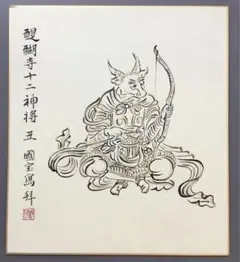 醍醐寺十二神将 丑 國宝寫拜